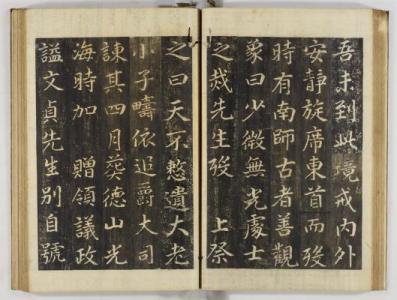 吾未到此境戒內外
安靜旋席東首而歿
時有南師古者善觀
象曰少微無光處士
之烖先生歿　上祭
之曰天不憖遺大老
小子疇依追爵大司
諫其四月葬德山光
海時加　贈領議政
諡文貞先生別自號